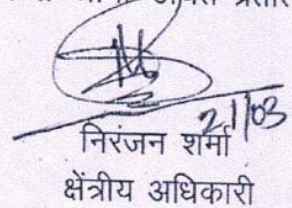 21/03
निरंजन शर्मा
क्षेंत्रीय अधिकारी